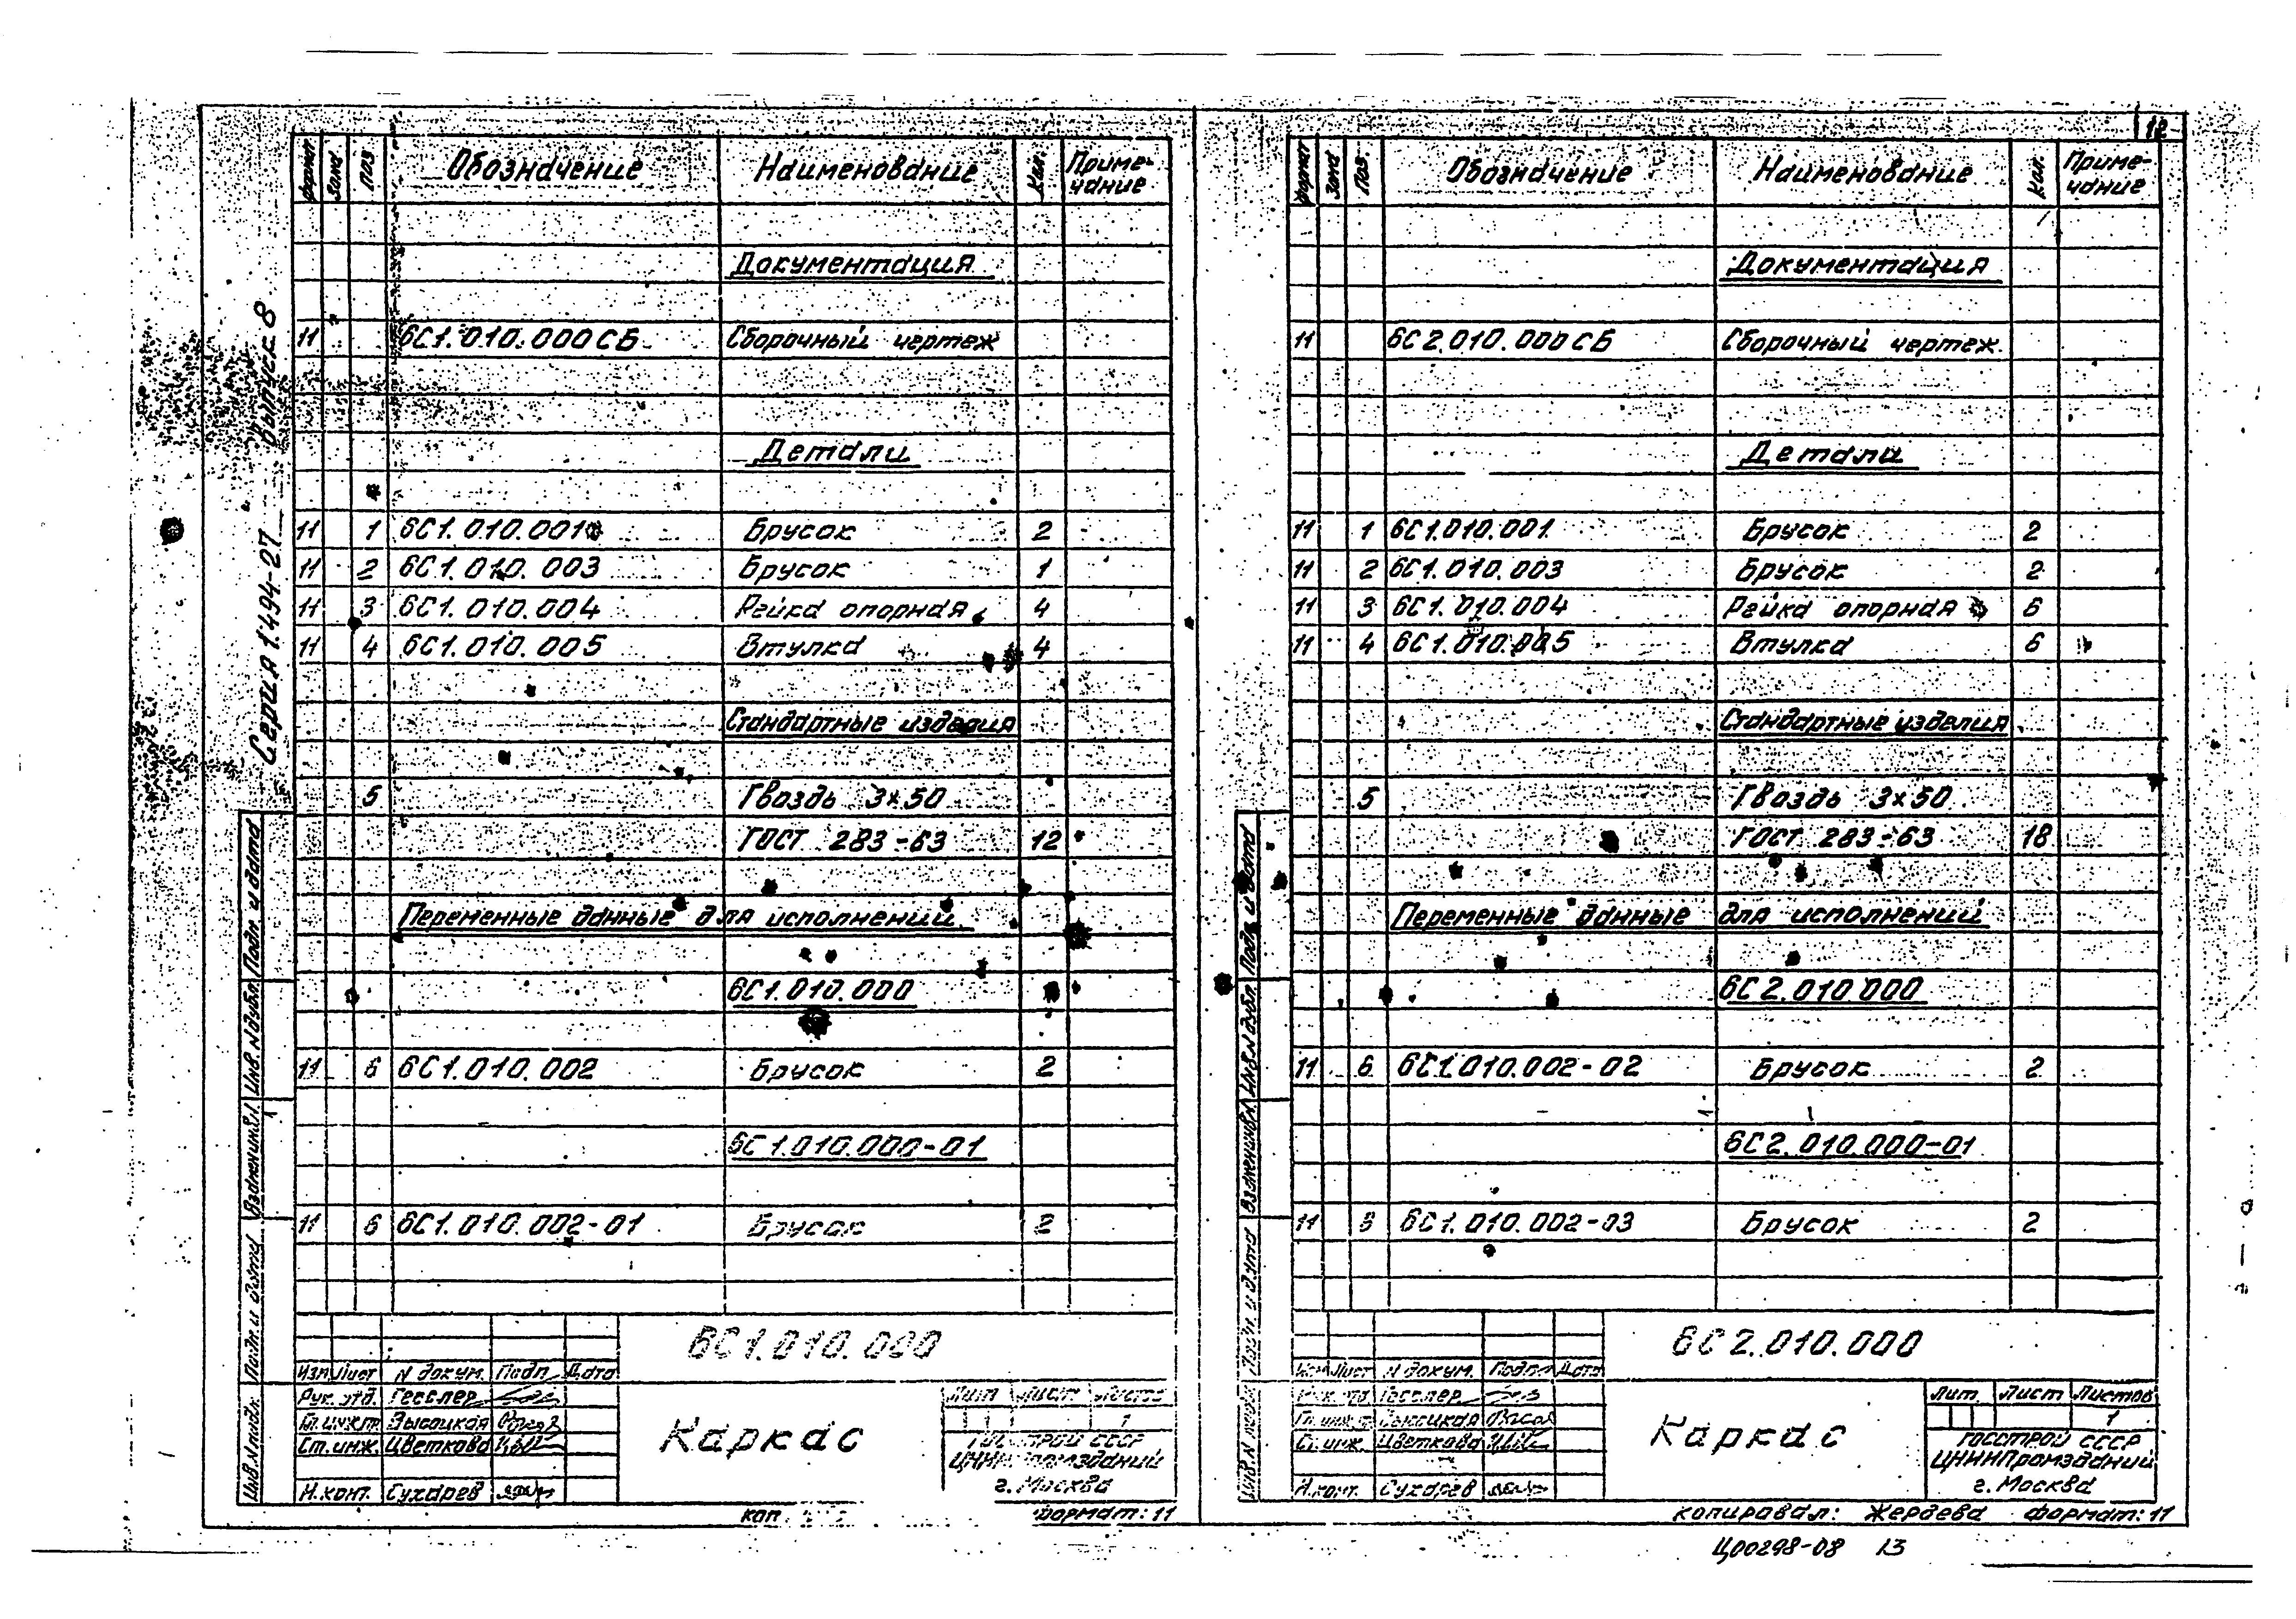 12
Серия 1.494-27 выпуск 8
формат Зона Поз Обозначение Наименование Кол. Примечание
Документация
11 6С1.010.000СБ Сборочный чертеж
Детали
11 1 6С1.010.001 Брусок 2
11 2 6С1.010.003 Брусок 1
11 3 6С1.010.004 Рейка опорная 4
11 4 6С1.010.005 Втулка 4
Стандартные изделия
5 Гвоздь 3×50
ГОСТ 283-63 12
Переменные данные для исполнений
6С1.010.000
11 6 6С1.010.002 Брусок 2
6С1.010.000-01
11 6 6С1.010.002-01 Брусок 2
Инв.N подл. Подп. и дата Взамен инв.N Инв.N дубл. Подп. и дата
6С1.010.000
Изм Лист N докум. Подп Дата
Рук. отд. Гесслер
Гл.инж.пр Высоцкая
Ст.инж. Цветкова
Н.конт. Сухарев
Каркас
Лит Лист Листов
1
ГОССТРОЙ СССР
ЦНИИПромзданий
г.Москва
коп
Формат: 11
формат Зона Поз. Обозначение Наименование Кол. Примечание
Документация
11 6С2.010.000СБ Сборочный чертеж.
Детали
11 1 6С1.010.001 Брусок 2
11 2 6С1.010.003 Брусок 2
11 3 6С1.010.004 Рейка опорная 6
11 4 6С1.010.005 Втулка 6
Стандартные изделия
5 Гвоздь 3×50
ГОСТ 283-63 18
Переменные данные для исполнений
6С2.010.000
11 6 6С1.010.002-02 Брусок 2
6С2.010.000-01
11 6 6С1.010.002-03 Брусок 2
Инв.N подл. Подп. и дата Взамен инв.N Инв.N дубл. Подп. и дата
6С2.010.000
Изм Лист N докум. Подп Дата
Рук. отд Гесслер
Гл.инж.п Высоцкая
Ст.инж. Цветкова
Н.конт. Сухарев
Каркас
Лит. Лист Листов
1
ГОССТРОЙ СССР
ЦНИИПромзданий
г.Москва
копировал: Жердева формат: 11
Ц00298-08 13